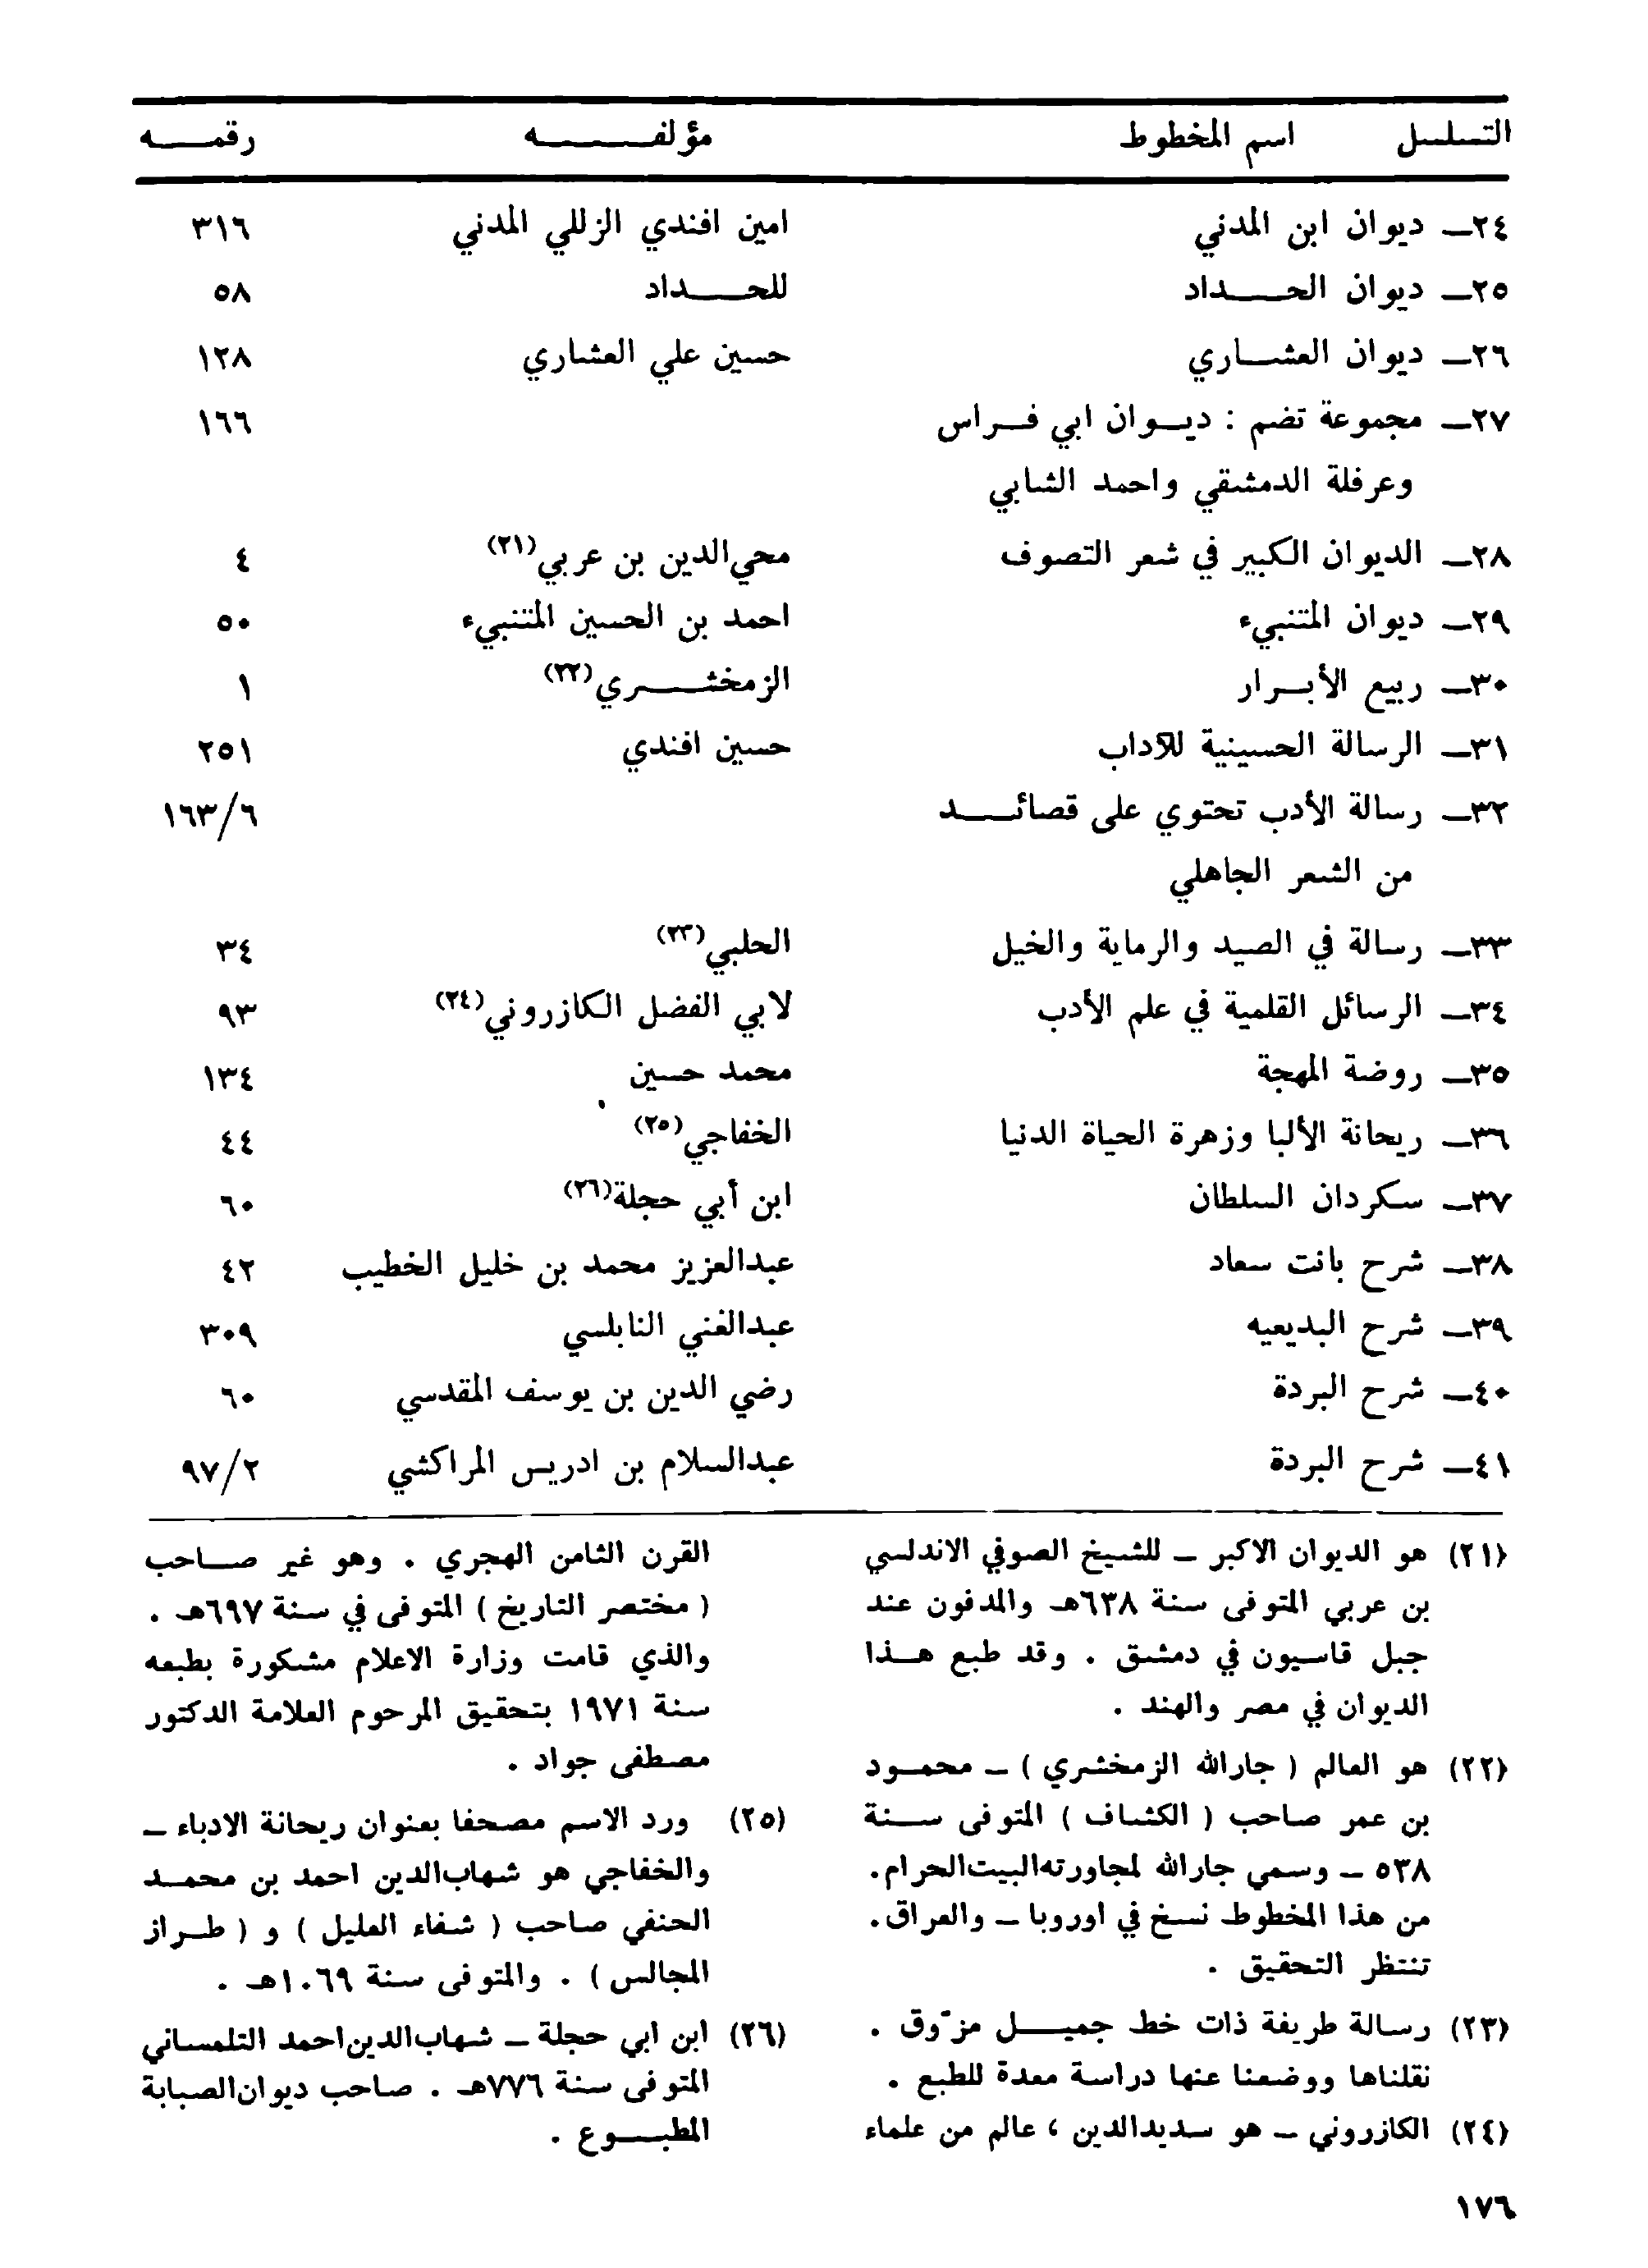 التسلسل اسم المخطوط مؤلفه رقمه
٢٤ــ ديوان ابن المدني امين افندي الزللي المدني ٣١٦
٢٥ــ ديوان الحداد للحداد ٥٨
٢٦ــ ديوان العشاري حسين علي العشاري ١٢٨
٢٧ــ مجموعة تضم : ديوان ابي فراس ١٦٦
وعرفلة الدمشقي واحمد الشابي
٢٨ــ الديوان الكبير في شعر التصوف محي‌الدين بن عربي(٢١) ٤
٢٩ــ ديوان المتنبيء احمد بن الحسين المتنبيء ٥٠
٣٠ــ ربيع الأبرار الزمخشري(٢٢) ١
٣١ــ الرسالة الحسينية للآداب حسين افندي ٢٥١
٣٢ــ رسالة الأدب تحتوي على قصائد ١٦٣/٦
من الشعر الجاهلي
٣٣ــ رسالة في الصيد والرماية والخيل الحلبي(٢٣) ٣٤
٣٤ــ الرسائل القلمية في علم الأدب لابي الفضل الكازروني(٢٤) ٩٣
٣٥ــ روضة المهجة محمد حسين ١٣٤
٣٦ــ ريحانة الألبا وزهرة الحياة الدنيا الخفاجي(٢٥) ٤٤
٣٧ــ سكردان السلطان ابن أبي حجلة(٢٦) ٦٠
٣٨ــ شرح بانت سعاد عبدالعزيز محمد بن خليل الخطيب ٤٢
٣٩ــ شرح البديعيه عبدالغني النابلسي ٣٠٩
٤٠ــ شرح البردة رضي الدين بن يوسف المقدسي ٦٠
٤١ــ شرح البردة عبدالسلام بن ادريس المراكشي ٩٧/٢
(٢١) هو الديوان الاكبر ــ للشيخ الصوفي الاندلسي
بن عربي المتوفى سنة ٦٣٨هـ والمدفون عند
جبل قاسيون في دمشق . وقد طبع هذا
الديوان في مصر والهند .
(٢٢) هو العالم ( جارالله الزمخشري ) ــ محمود
بن عمر صاحب ( الكشاف ) المتوفى سنة
٥٣٨ ــ وسمي جارالله لمجاورته‌البيت‌الحرام.
من هذا المخطوط نسخ في اوروبا ــ والعراق.
تنتظر التحقيق .
(٢٣) رسالة طريفة ذات خط جميل مزوّق .
نقلناها ووضعنا عنها دراسة معدة للطبع .
(٢٤) الكازروني ــ هو سديدالدين ، عالم من علماء
القرن الثامن الهجري . وهو غير صاحب
( مختصر التاريخ ) المتوفى في سنة ٦٩٧هـ .
والذي قامت وزارة الاعلام مشكورة بطبعه
سنة ١٩٧١ بتحقيق المرحوم العلامة الدكتور
مصطفى جواد .
(٢٥) ورد الاسم مصحفا بعنوان ريحانة الادباء ــ
والخفاجي هو شهاب‌الدين احمد بن محمد
الحنفي صاحب ( شفاء العليل ) و ( طراز
المجالس ) . والمتوفى سنة ١٠٦٩هـ .
(٢٦) ابن ابي حجلة ــ شهاب‌الدين‌احمد التلمساني
المتوفى سنة ٧٧٦هـ . صاحب ديوان‌الصبابة
المطبوع .
١٧٦